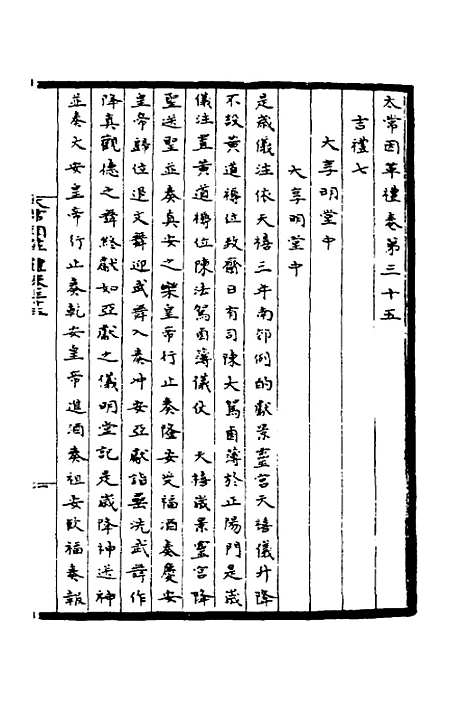 太常因革禮卷第三十五
吉禮七
大享明堂中
大享明堂中
是歲儀注依天禧三年南郊例的獻景靈宮天禧儀升降
不設黃道褥位致齋日有司陳大駕鹵簿於正陽門是歲
儀注置黃道褥位陳法駕鹵簿儀仗 天禧歲景靈宮降
聖送聖並奏真安之樂皇帝行止奏隆安受福酒奏慶安
皇帝歸位退文舞迎武舞入奏沖安亞獻詣罍洗武舞作
降真觀德之舞終獻如亞獻之儀明堂記是歲降神送神
並奏大安皇帝行止奏乾安皇帝進酒奏祖安飲福奏報
太常因革禮卷三十五